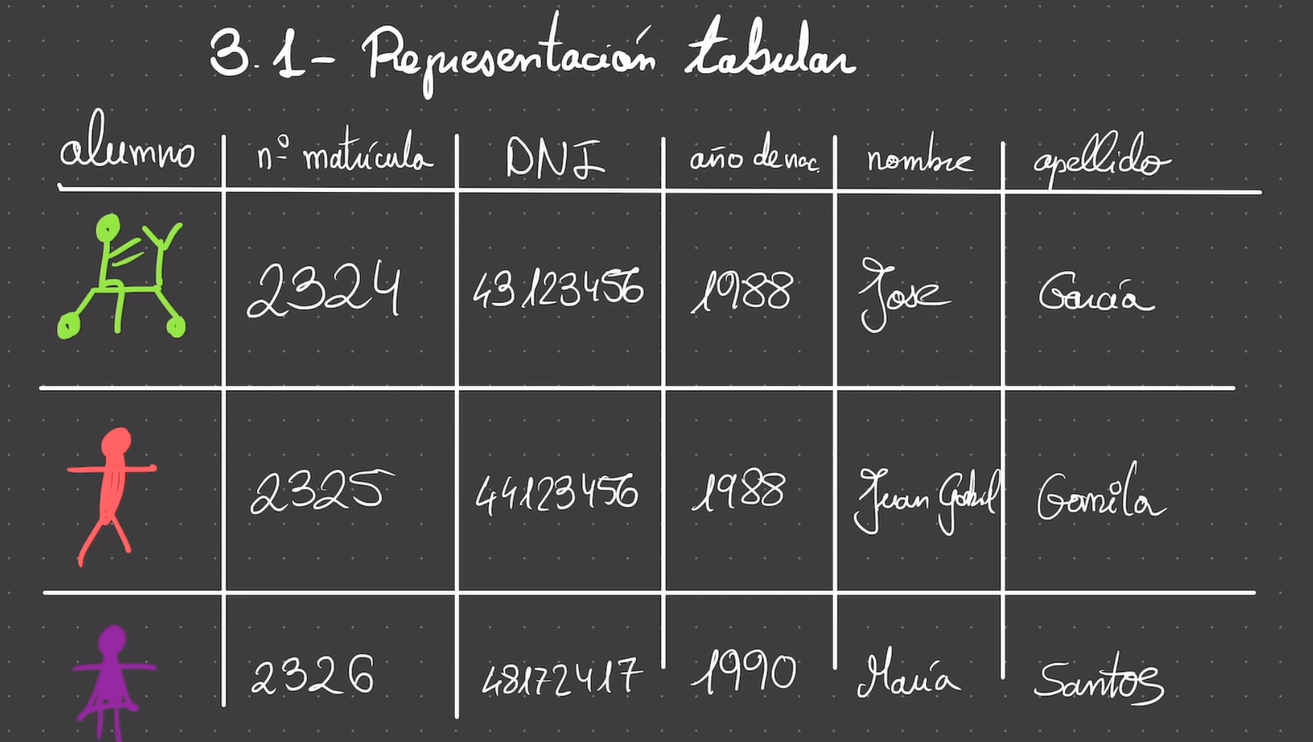 3.1- Representación tabular
alumno nº matrícula DNI año de nac. nombre apellido
2324 43123456 1988 Jose García
2325 44123456 1988 Juan Gabriel Gomila
2326 48172417 1990 María Santos